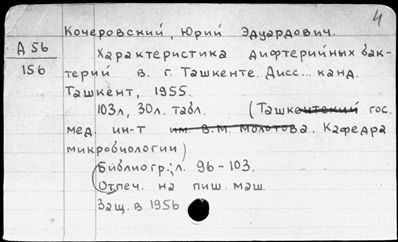 4
Кочеровский, Юрий Эдуардович.
Д 56
156
Характеристика дифтерийных бак-
терий в г. Ташкенте. Дисс... канд.
Ташкент, 1955.
103л, 30л. табл. (Ташкентский гос.
мед. ин-т им В.М. Молотова. Кафедра
микробиологии)
Библиогр.: л. 96-103.
Отпеч. на пиш. маш.
Защ. в 1956